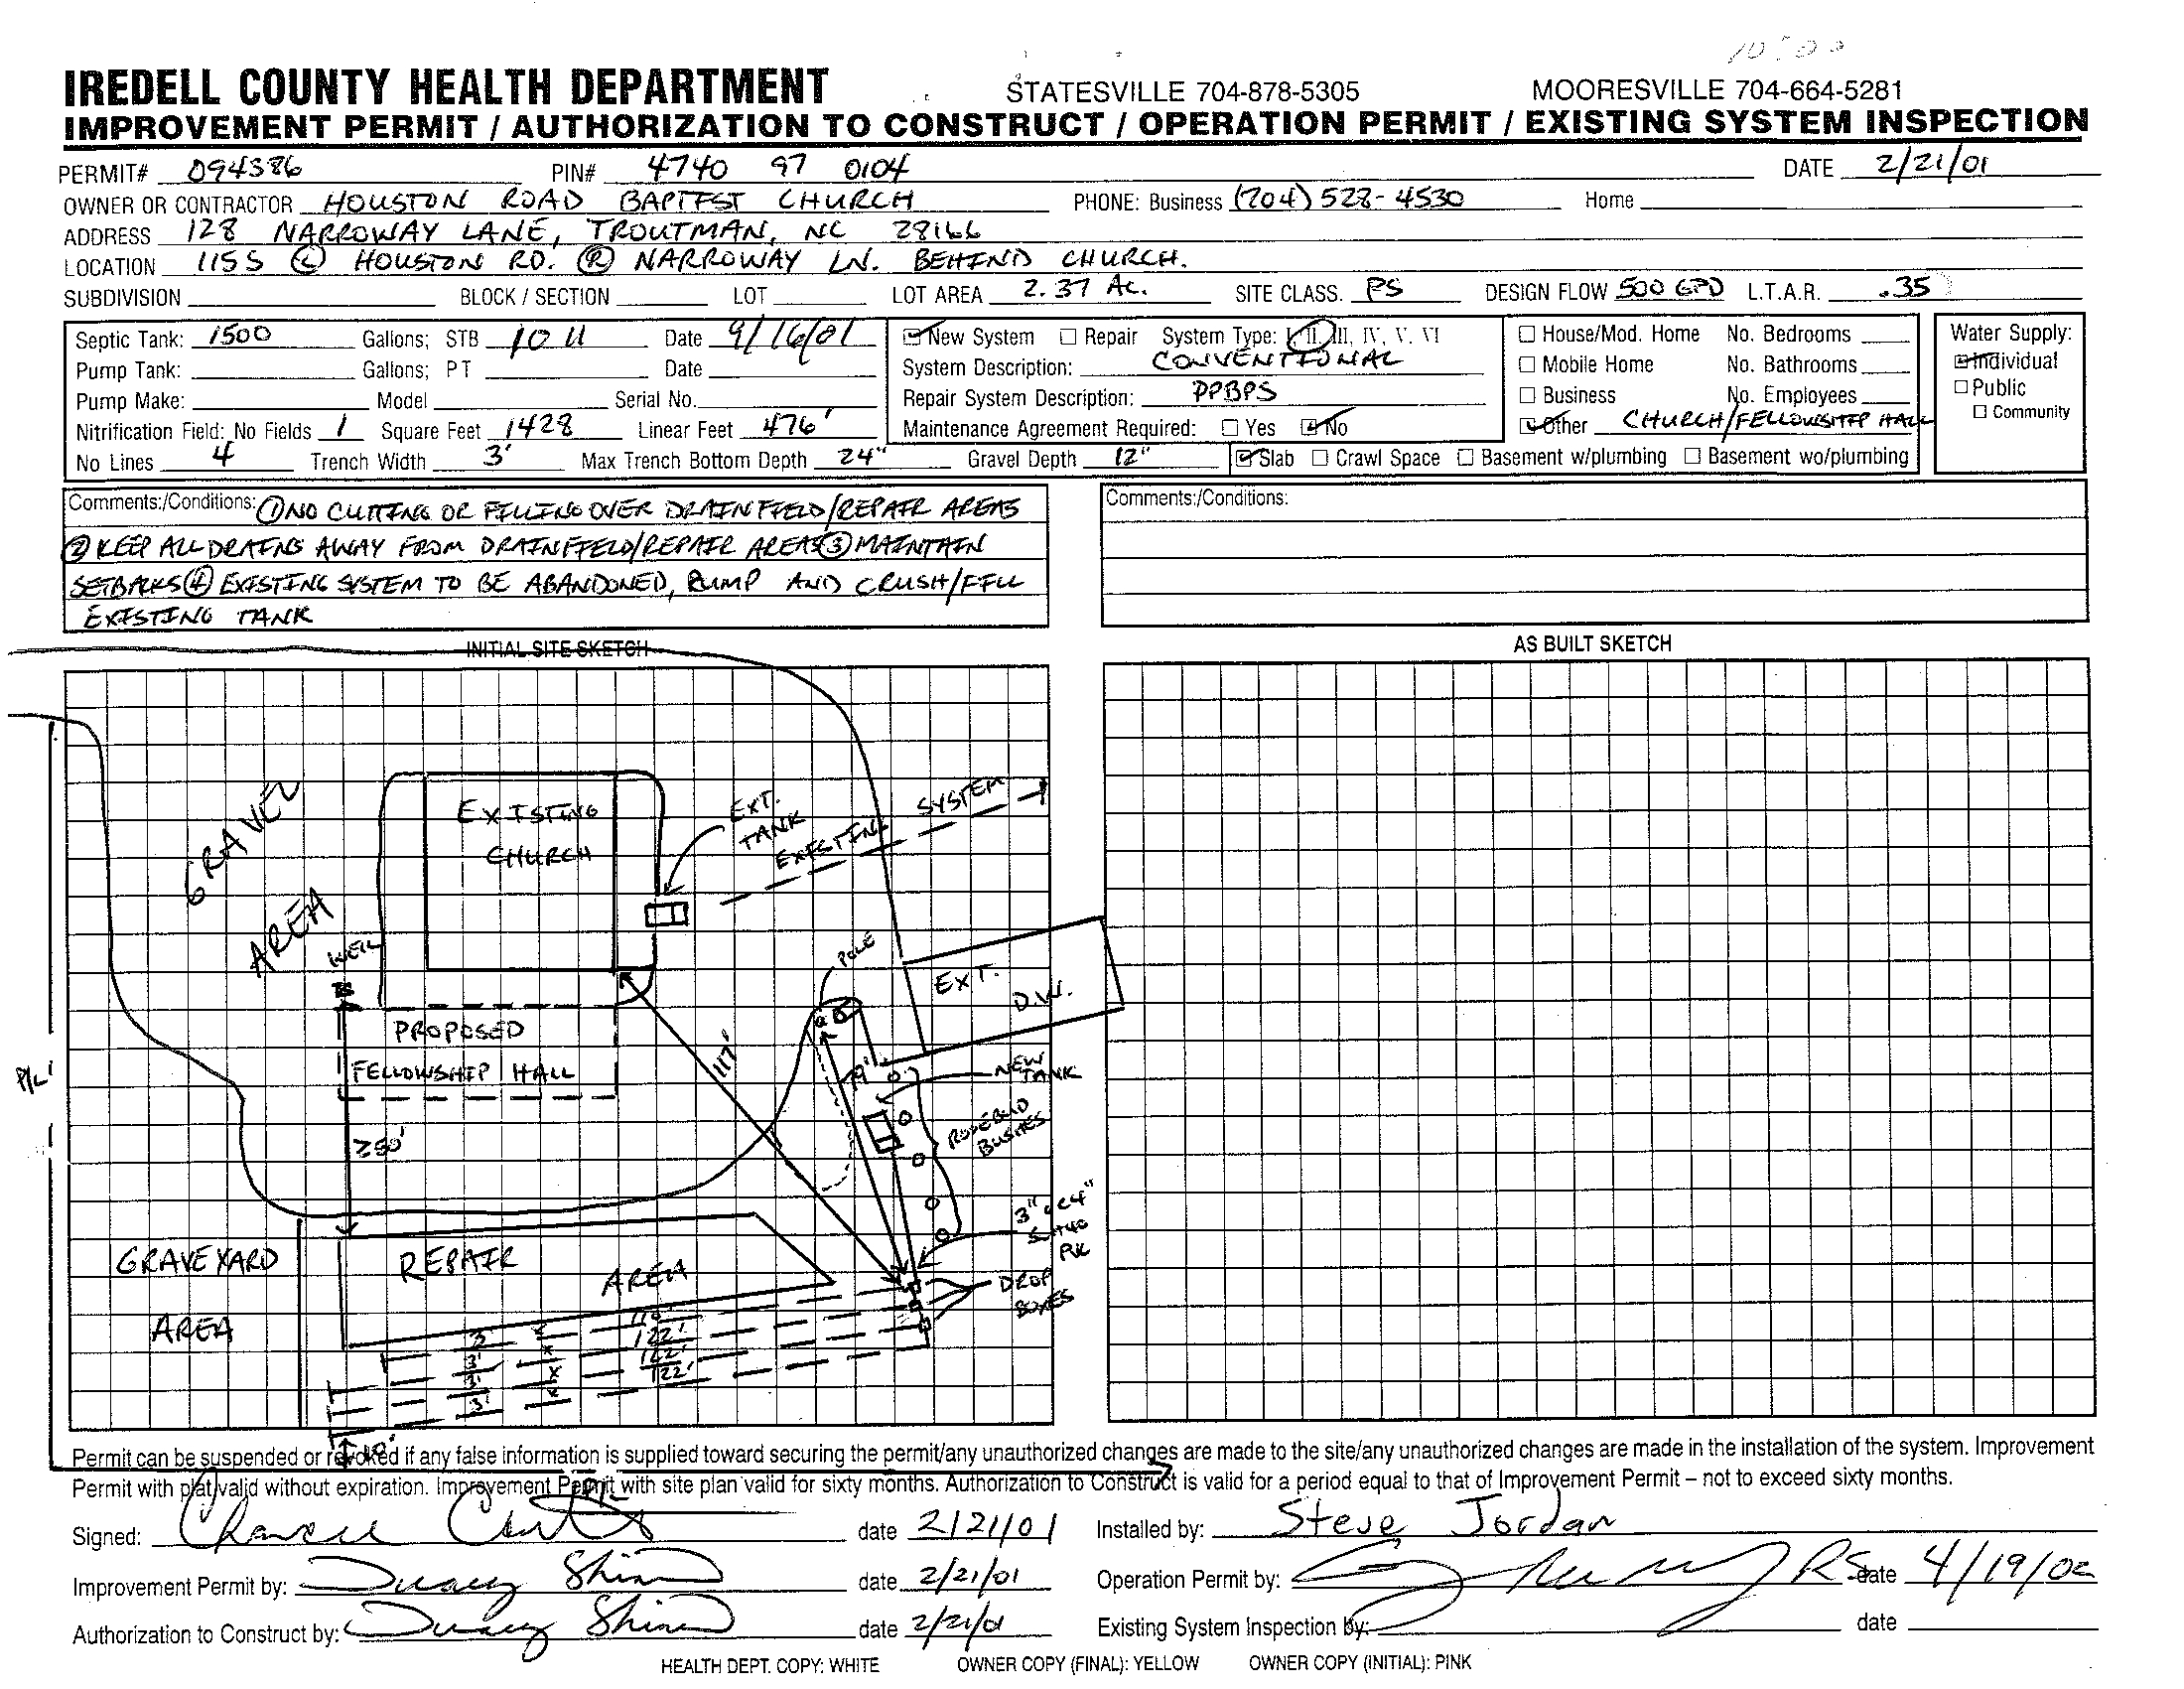 IREDELL COUNTY HEALTH DEPARTMENT STATESVILLE 704-878-5305 MOORESVILLE 704-664-5281
IMPROVEMENT PERMIT / AUTHORIZATION TO CONSTRUCT / OPERATION PERMIT / EXISTING SYSTEM INSPECTION
PERMIT# 094386 PIN# 4740 97 0104 DATE 2/21/01
OWNER OR CONTRACTOR HOUSTON ROAD BAPTIST CHURCH PHONE: Business (704) 528-4530 Home
ADDRESS 128 NARROWAY LANE, TROUTMAN, NC 28166
LOCATION 115 S (L) HOUSTON RD. (R) NARROWAY LN. BEHIND CHURCH.
SUBDIVISION BLOCK / SECTION LOT LOT AREA 2.37 AC. SITE CLASS. PS DESIGN FLOW 500 GPD L.T.A.R. .35
Septic Tank: 1500 Gallons; STB Date 9/16/01
Pump Tank: Gallons; PT Date
Pump Make: Model Serial No.
Nitrification Field: No Fields 1 Square Feet 1428 Linear Feet 476'
No Lines 4 Trench Width 3' Max Trench Bottom Depth 24" Gravel Depth 12"
New System Repair System Type: I, II, III, IV, V, VI
System Description: CONVENTIONAL
Repair System Description: PPBPS
Maintenance Agreement Required: Yes No
Slab Crawl Space Basement w/plumbing Basement wo/plumbing
House/Mod. Home No. Bedrooms
Mobile Home No. Bathrooms
Business No. Employees
Other CHURCH/FELLOWSHIP HALL
Water Supply:
Individual
Public
Community
Comments:/Conditions: (1) NO CUTTING OR FILLING OVER DRAINFIELD/REPAIR AREAS
(2) KEEP ALL DRAINS AWAY FROM DRAINFIELD/REPAIR AREAS (3) MAINTAIN
SETBACKS (4) EXISTING SYSTEM TO BE ABANDONED, PUMP AND CRUSH/FILL
EXISTING TANK
Comments:/Conditions:
INITIAL SITE SKETCH
AS BUILT SKETCH
GRAVEL
AREA
EXISTING
CHURCH
EXT.
TANK
EXISTING SYSTEM
WELL
POLE
EXT.
D.W.
PROPOSED
FELLOWSHIP HALL
117'
79'
NEW
TANK
P/L
ROSEBUD
BUSHES
3" SCH40
PVC
GRAVEYARD
AREA
REPAIR
AREA
DROP
BOXES
110'
122'
122'
122'
3'
3'
3'
3'
10'
P/L
Permit can be suspended or revoked if any false information is supplied toward securing the permit/any unauthorized changes are made to the site/any unauthorized changes are made in the installation of the system. Improvement
Permit with plat valid without expiration. Improvement Permit with site plan valid for sixty months. Authorization to Construct is valid for a period equal to that of Improvement Permit – not to exceed sixty months.
Signed: date 2/21/01 Installed by: Steve Jordan
Improvement Permit by: date 2/21/01 Operation Permit by: RS date 4/19/02
Authorization to Construct by: date 2/21/01 Existing System Inspection by: date
HEALTH DEPT. COPY: WHITE OWNER COPY (FINAL): YELLOW OWNER COPY (INITIAL): PINK